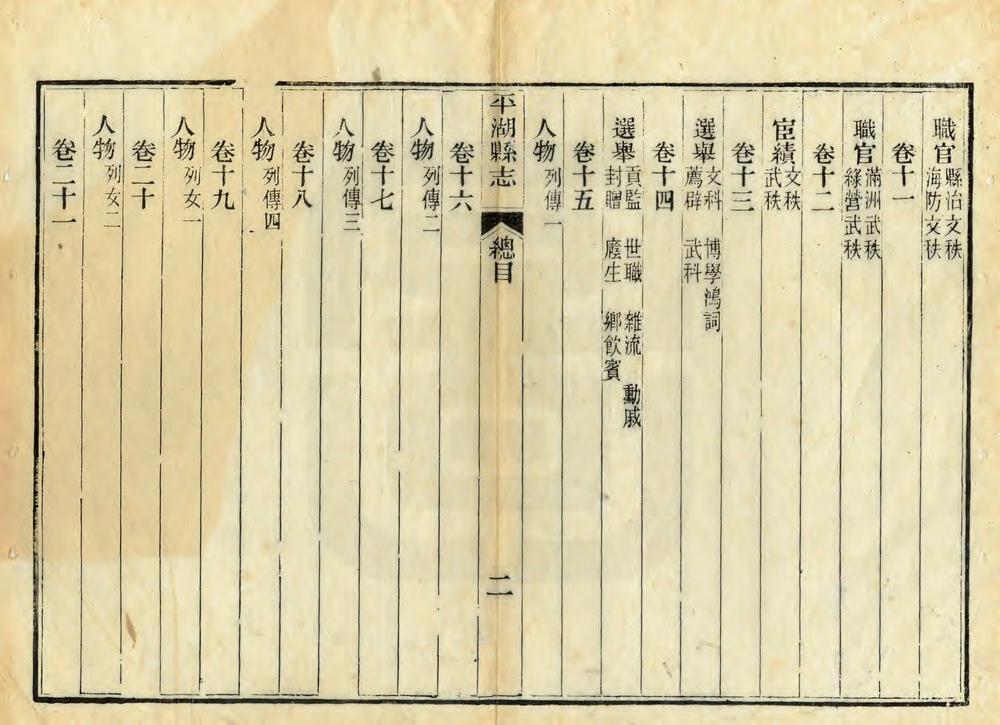 職官 縣治文秩 海防文秩
卷十一
職官 滿洲武秩 綠營武秩
卷十二
宦績 文秩 武秩
卷十三
選舉 文科 博學鴻詞 薦辟 武科
卷十四
選舉 貢監 世職 雜流 勳戚 封贈 廕生 鄉飲賓
卷十五
人物 列傳一
平湖縣志 總目 二
卷十六
人物 列傳二
卷十七
人物 列傳三
卷十八
人物 列傳四
卷十九
人物 列女一
卷二十
人物 列女二
卷二十一